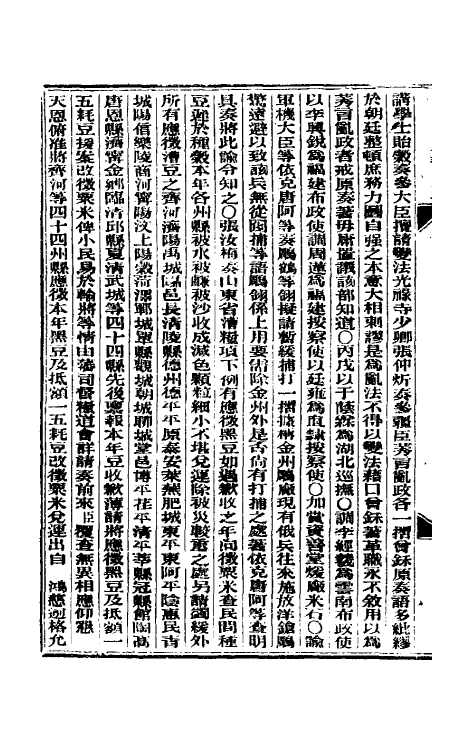 講學士貽穀奏參大臣擅請變法光祿寺少卿張仲炘奏參疆臣莠言亂政各一摺曾鉌原奏語多紕繆
於朝廷整頓庶務力圖自强之本意大相刺謬是爲亂法不得以變法藉口曾鉌著革職永不敘用以爲
莠言亂政者戒原奏著毋庸置議該部知道○丙戌以于蔭霖爲湖北巡撫○調李經羲爲雲南布政使
以李興銳爲福建布政使調周蓮爲福建按察使以廷雍爲直隸按察使○加賞資善堂煖廠米石○諭
軍機大臣等依克唐阿等奏鵰鶴等翎擬請暫緩捕打一摺據稱金州鵰廠現有俄兵往來施放洋鎗鵰
驚遠避以致該兵無從圍捕等語鵰翎係上用要需除金州外是否尚有打捕之處著依克唐阿等查明
具奏將此諭令知之○張汝梅奏山東省漕糧項下例有應徵黑豆如遇歉收之年向徵粟米查民間種
豆雜於種穀本年各州縣被水被鹻被沙收成減色顆粒細小不堪兌運除被災較重之處另請蠲緩外
所有應徵漕豆之齊河濟陽禹城臨邑長淸陵縣德州德平平原泰安萊蕪肥城東平東阿平陰惠民靑
城陽信樂陵商河甯陽汶上陽穀壽張鄆城單縣觀城朝城聊城堂邑博平茌平淸平莘縣冠縣館陶高
唐恩縣濟甯金鄉臨淸邱縣夏淸武城等四十四縣先後稟報本年豆收歉薄請將應徵黑豆及抵額一
五耗豆援案改徵粟米俾小民易於輸將等情由藩司督糧道會詳請奏前來臣覆查無異相應仰懇
天恩俯准將齊河等四十四州縣應徵本年黑豆及抵額一五耗豆改徵粟米兌運出自 鴻慈逾格允